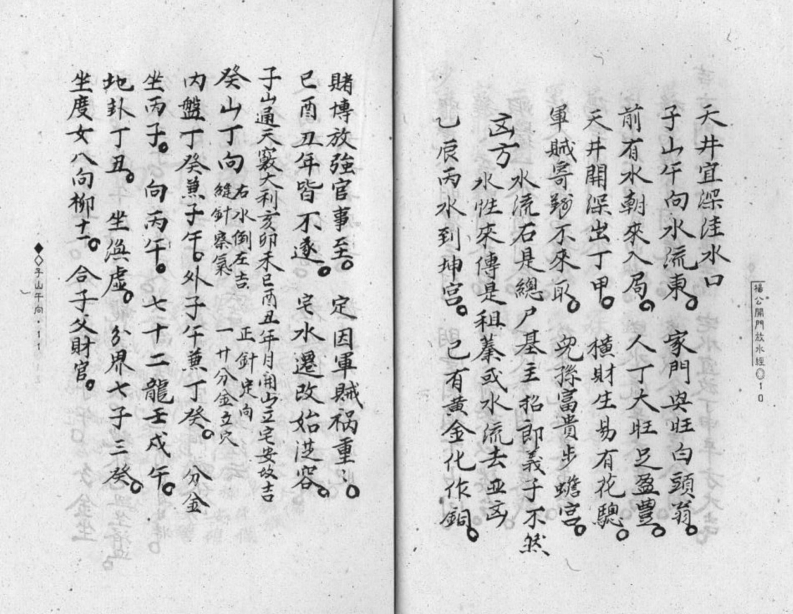 天井宜深洼水口
子山午向水流東。 家門興旺白頭翁。
前有水朝來入局。 人丁大旺足盈豐。
天井開深出丁甲。 橫財生易有花驄。
軍賊寄 不來取。 兒孫富貴步蟾宮。
水流石是總户基主招郎義子不然
凶方
水性來傳是租 或水流去 凶
乙辰丙水到坤宮。 已有黃金化作銅。
楊公開門放水經 10
賭博放強官事至。 定因軍賊禍重重。
巳酉丑年皆不遂。 宅水遷改始從容。
子山通天竅大利亥卯未巳酉丑年月開山立宅安坟吉
癸山丁向 右水倒左吉 正針定向
縫針察氣 一廿分金立穴
內盤丁癸兼子午。外子午兼丁癸。 分金
坐丙子。向丙午。七十二龍壬戌午。
地卦丁丑。坐 虛。分界七子三癸。
坐度女八向柳十二。合子父財官。
子山午向·11